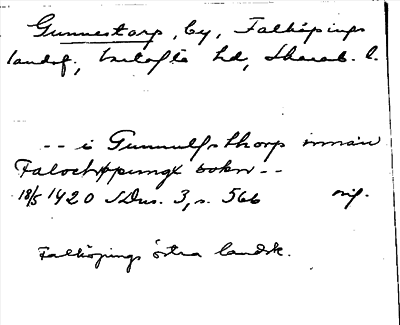 Gunnestorp, by, Falköpings
landsf., Vilske hd, Skarab. l.
-- i Gunnulfsthorp innan
Falochöpungx sokn --
18/5 1420 SDns. 3, s. 566 orig.
Falköpings östra landsk.